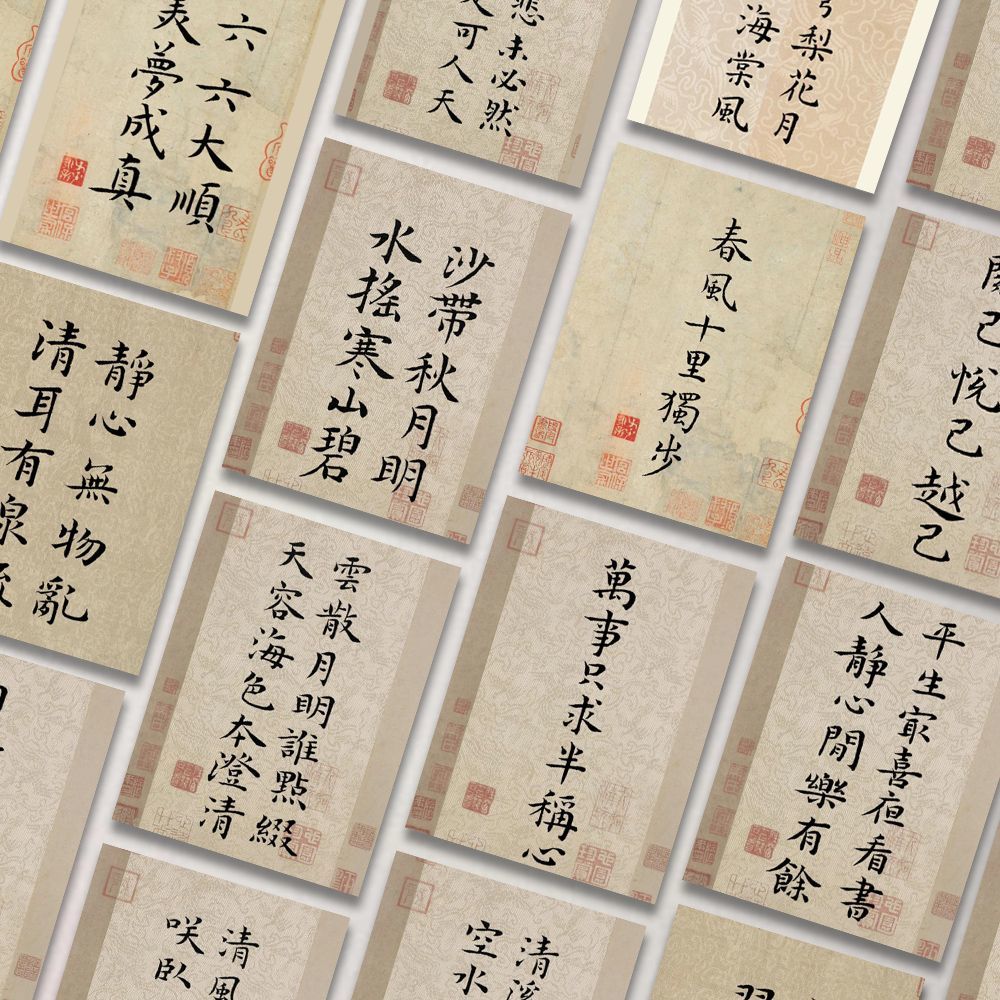 六六大順
美夢成真
悲未必然
可人天
梨花月
海棠風
沙带秋月明
水搖寒山碧
春風十里獨步
己悅己越己
靜心無物亂
清耳有泉
雲散月明誰點綴
天容海色本澄清
萬事只求半稱心
平生冣喜夜看書
人靜心閒樂有餘
清風
咲臥
清溪
空水